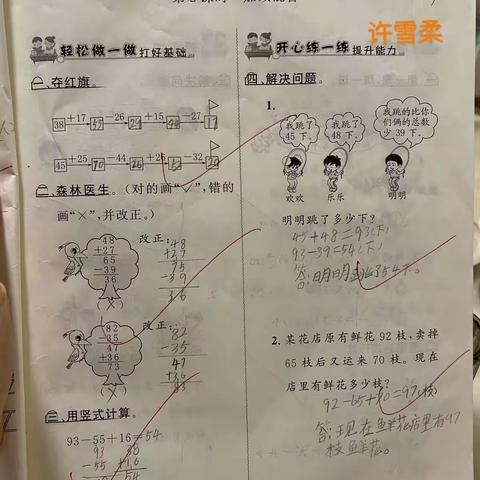 许雪柔
轻松做一做 打好基础
一、夺红旗。
38 +17 −26 29 +15 −27 17
45 +25 70 −44 +26 −32 20
二、森林医生。(对的画“✓”,错的
画“×”,并改正。)
48
+27
65
−39
36
(×)
改正:
48
+27
75
−39
36
82
−35
47
+36
73
(×)
改正:
82
−35
47
+36
83
三、用竖式计算。
93−55+16=54
93
−55
54
开心练一练 提升能力
四、解决问题。
1.
我跳了
45 下。
我跳了
48 下。
我跳的比你
们俩的总数
少 39 下。
欢欢
乐乐
明明
明明跳了多少下?
45+48=93(下)
93−39=54(下)
答:明明跳了54下。
2. 某花店原有鲜花 92 枝,卖掉
65 枝后又运来 70 枝。现在
店里有鲜花多少枝?
92−65+70=97(枝)
答:现在鲜花店里有97
枝鲜花。